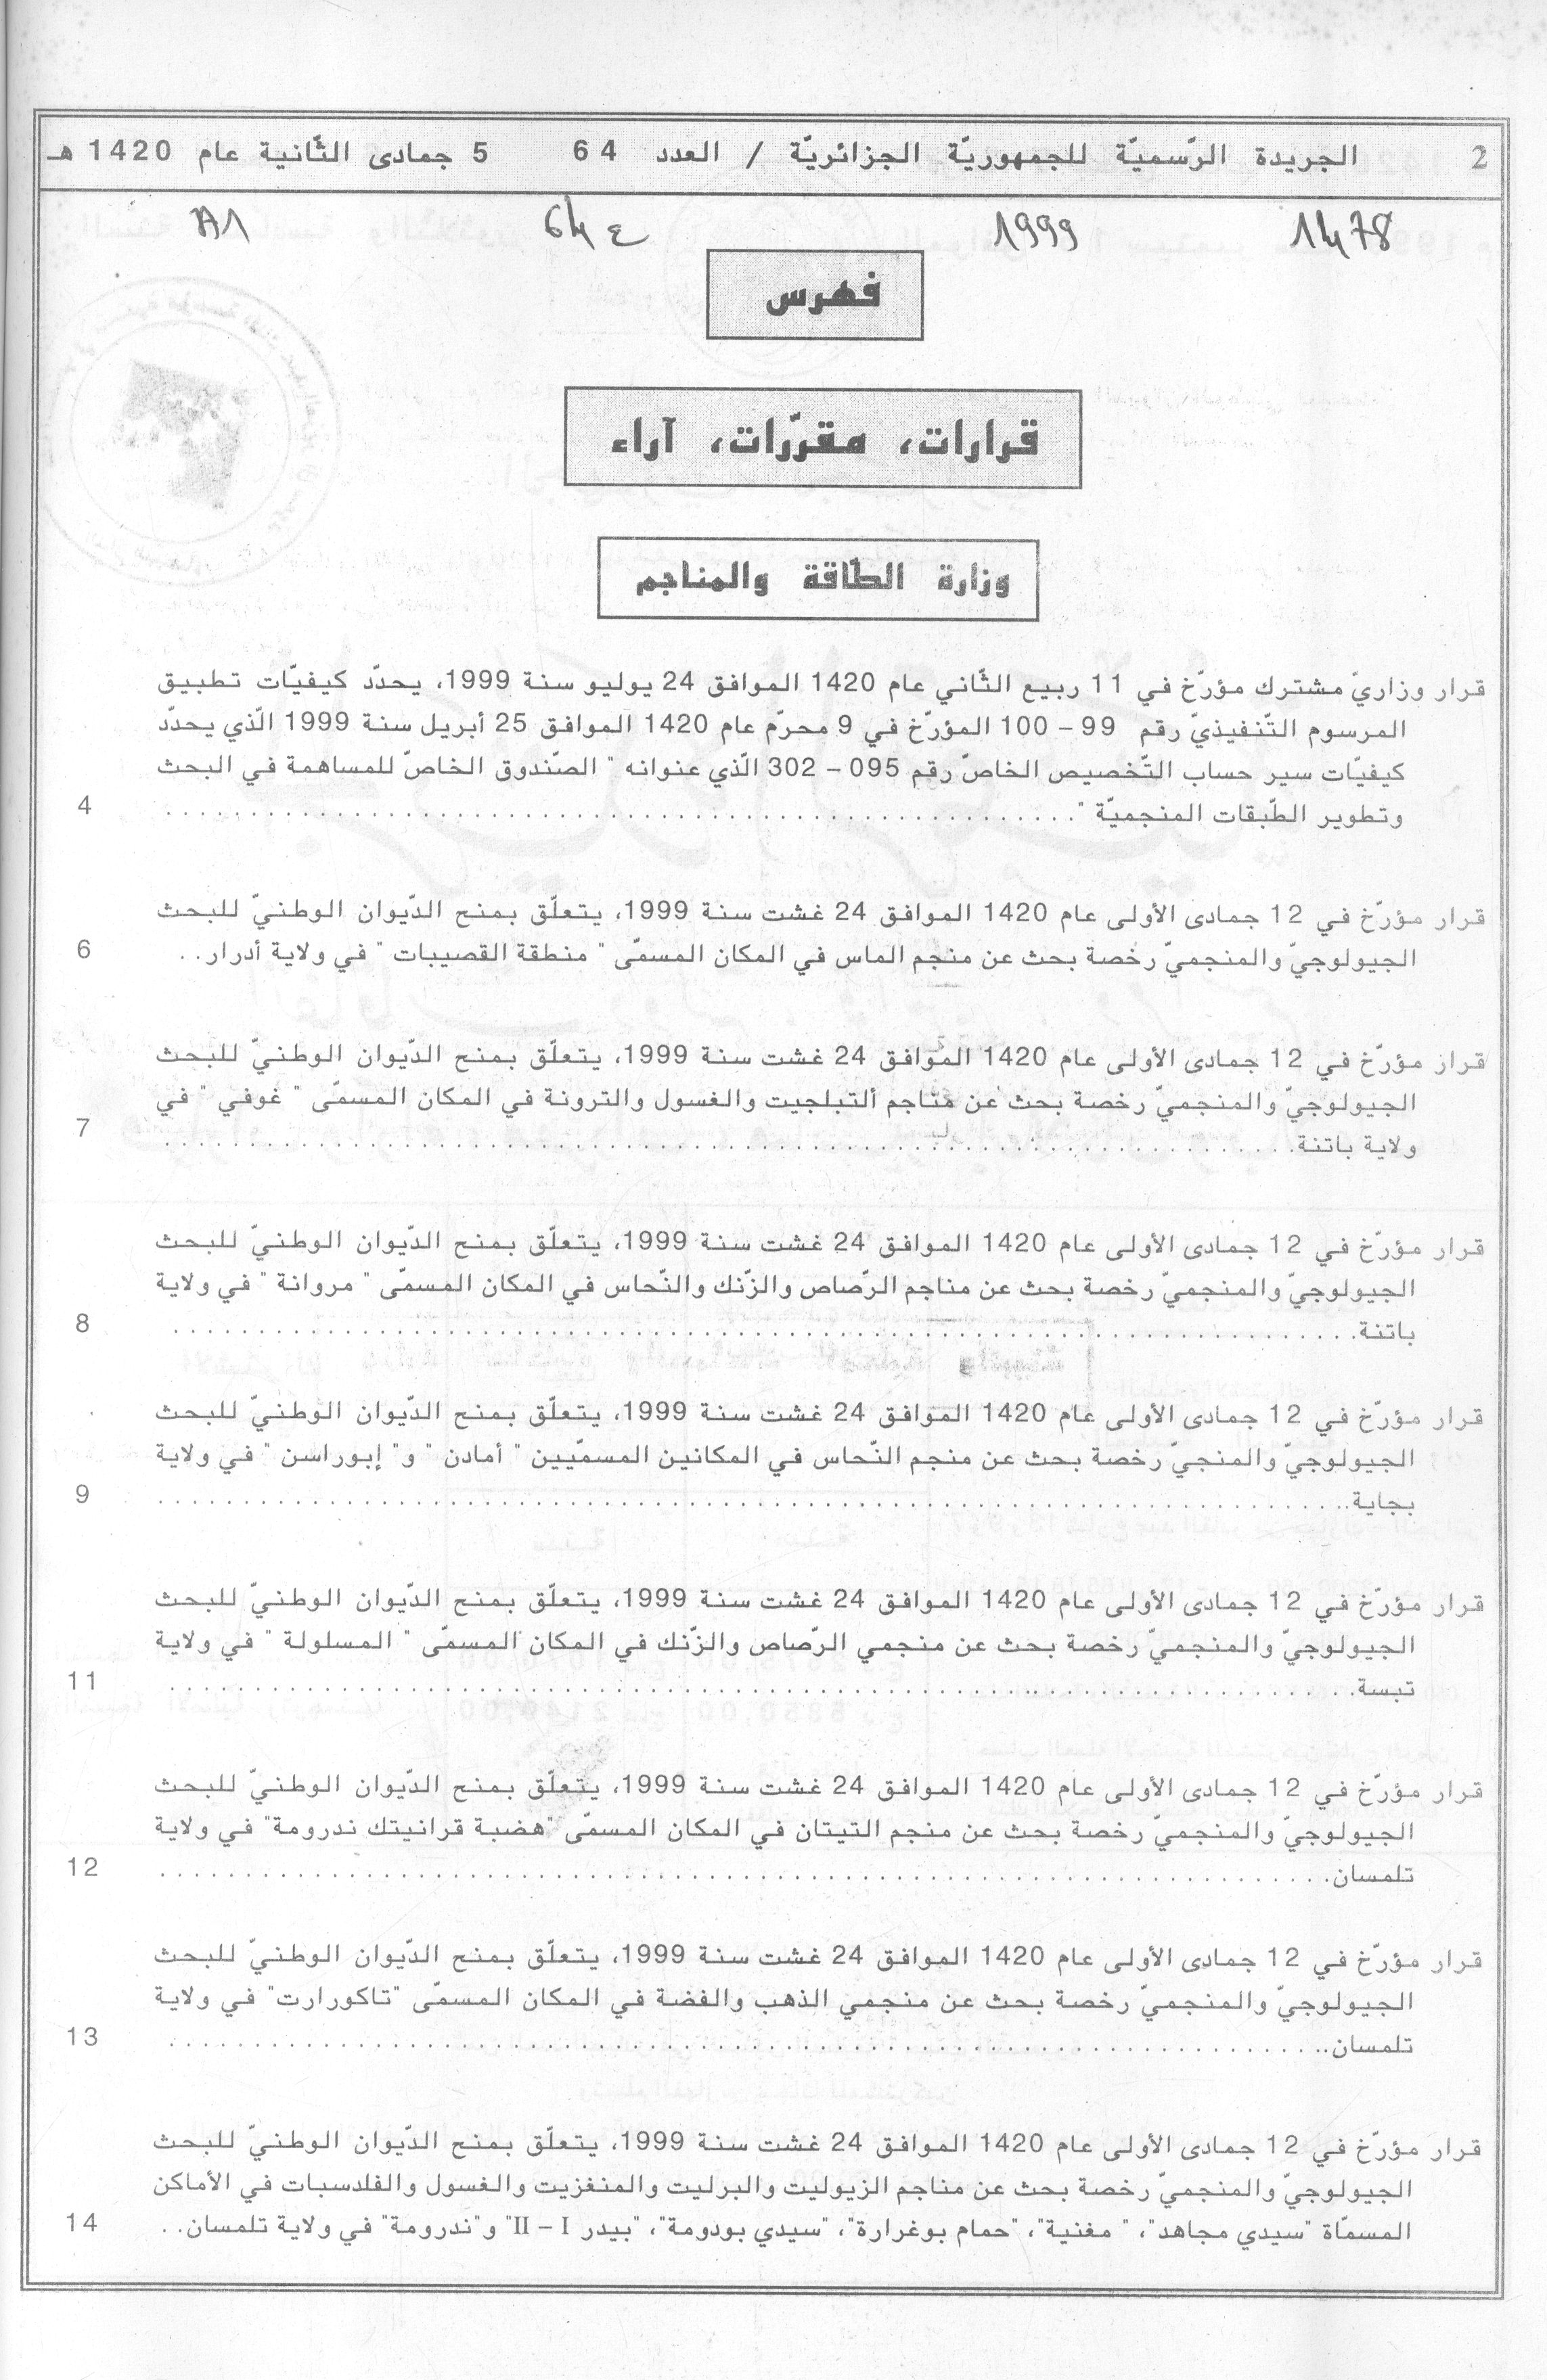 2 الجريدة الرّسميّة للجمهوريّة الجزائريّة / العدد 64 5 جمادى الثّانية عام 1420 هـ
1478 1999 ع 64 A1
فهرس
قرارات، مقرّرات، آراء
وزارة الطّاقة والمناجم
قرار وزاريّ مشترك مؤرّخ في 11 ربيع الثّاني عام 1420 الموافق 24 يوليو سنة 1999، يحدّد كيفيّات تطبيق
المرسوم التّنفيذيّ رقم 99 – 100 المؤرّخ في 9 محرّم عام 1420 الموافق 25 أبريل سنة 1999 الّذي يحدّد
كيفيّات سير حساب التّخصيص الخاصّ رقم 095 – 302 الّذي عنوانه " الصّندوق الخاصّ للمساهمة في البحث
وتطوير الطّبقات المنجميّة "........ 4
قرار مؤرّخ في 12 جمادى الأولى عام 1420 الموافق 24 غشت سنة 1999، يتعلّق بمنح الدّيوان الوطنيّ للبحث
الجيولوجيّ والمنجميّ رخصة بحث عن منجم الماس في المكان المسمّى " منطقة القصيبات " في ولاية أدرار.. 6
قرار مؤرّخ في 12 جمادى الأولى عام 1420 الموافق 24 غشت سنة 1999، يتعلّق بمنح الدّيوان الوطنيّ للبحث
الجيولوجيّ والمنجميّ رخصة بحث عن مناجم ألتبلجيت والغسول والترونة في المكان المسمّى " غوفي " في
ولاية باتنة........ 7
قرار مؤرّخ في 12 جمادى الأولى عام 1420 الموافق 24 غشت سنة 1999، يتعلّق بمنح الدّيوان الوطنيّ للبحث
الجيولوجيّ والمنجميّ رخصة بحث عن مناجم الرّصاص والزّنك والنّحاس في المكان المسمّى " مروانة " في ولاية
باتنة........ 8
قرار مؤرّخ في 12 جمادى الأولى عام 1420 الموافق 24 غشت سنة 1999، يتعلّق بمنح الدّيوان الوطنيّ للبحث
الجيولوجيّ والمنجيّ رخصة بحث عن منجم النّحاس في المكانين المسمّيين " أمادن " و" إبوراسن " في ولاية
بجاية........ 9
قرار مؤرّخ في 12 جمادى الأولى عام 1420 الموافق 24 غشت سنة 1999، يتعلّق بمنح الدّيوان الوطنيّ للبحث
الجيولوجيّ والمنجميّ رخصة بحث عن منجمي الرّصاص والزّنك في المكان المسمّى " المسلولة " في ولاية
تبسة........ 11
قرار مؤرّخ في 12 جمادى الأولى عام 1420 الموافق 24 غشت سنة 1999، يتعلّق بمنح الدّيوان الوطنيّ للبحث
الجيولوجيّ والمنجميّ رخصة بحث عن منجم التيتان في المكان المسمّى "هضبة قرانيتك ندرومة" في ولاية
تلمسان........ 12
قرار مؤرّخ في 12 جمادى الأولى عام 1420 الموافق 24 غشت سنة 1999، يتعلّق بمنح الدّيوان الوطنيّ للبحث
الجيولوجيّ والمنجميّ رخصة بحث عن منجمي الذهب والفضة في المكان المسمّى "تاكورارت" في ولاية
تلمسان........ 13
قرار مؤرّخ في 12 جمادى الأولى عام 1420 الموافق 24 غشت سنة 1999، يتعلّق بمنح الدّيوان الوطنيّ للبحث
الجيولوجيّ والمنجميّ رخصة بحث عن مناجم الزيوليت والبرليت والمنغزيت والغسول والفلدسبات في الأماكن
المسمّاة "سيدي مجاهد"، " مغنية"، "حمام بوغرارة"، "سيدي بودومة"، "بيدر I – II" و"ندرومة" في ولاية تلمسان.. 14